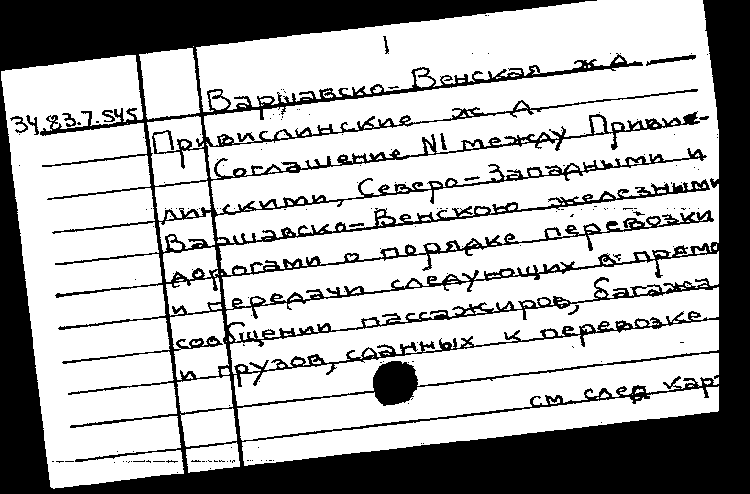 1
Варшавско-Венская ж. д.
34.83.7.545
Привислинские ж. д.
Соглашение N1 между Привис-
линскими, Северо-Западными и
Варшавско-Венскою железными
дорогами о порядке перевозки
и передачи следующих в прямо
сообщении пассажиров, багажа
и грузов, сданных к перевозке
см. след кар